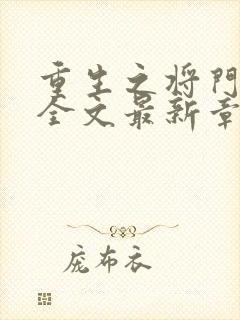 重生之将门
全文最新章
庞布衣